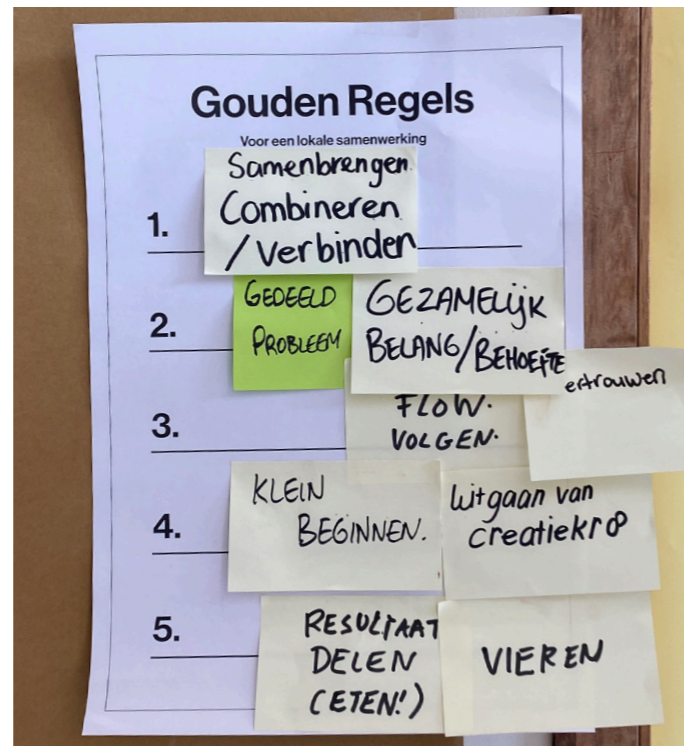 Gouden Regels
Voor een lokale samenwerking
1.
Samenbrengen
Combineren
/Verbinden
2.
GEDEELD
PROBLEEM
GEZAMELIJK
BELANG/BEHOEFTE
3.
FLOW.
VOLGEN.
ertrouwen
4.
KLEIN
BEGINNEN.
Uitgaan van
5.
RESULTAAT
DELEN
(ETEN!)
VIEREN